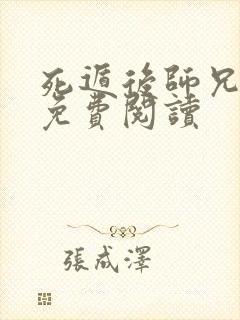 死遁後師兄
免費閱讀
張成澤